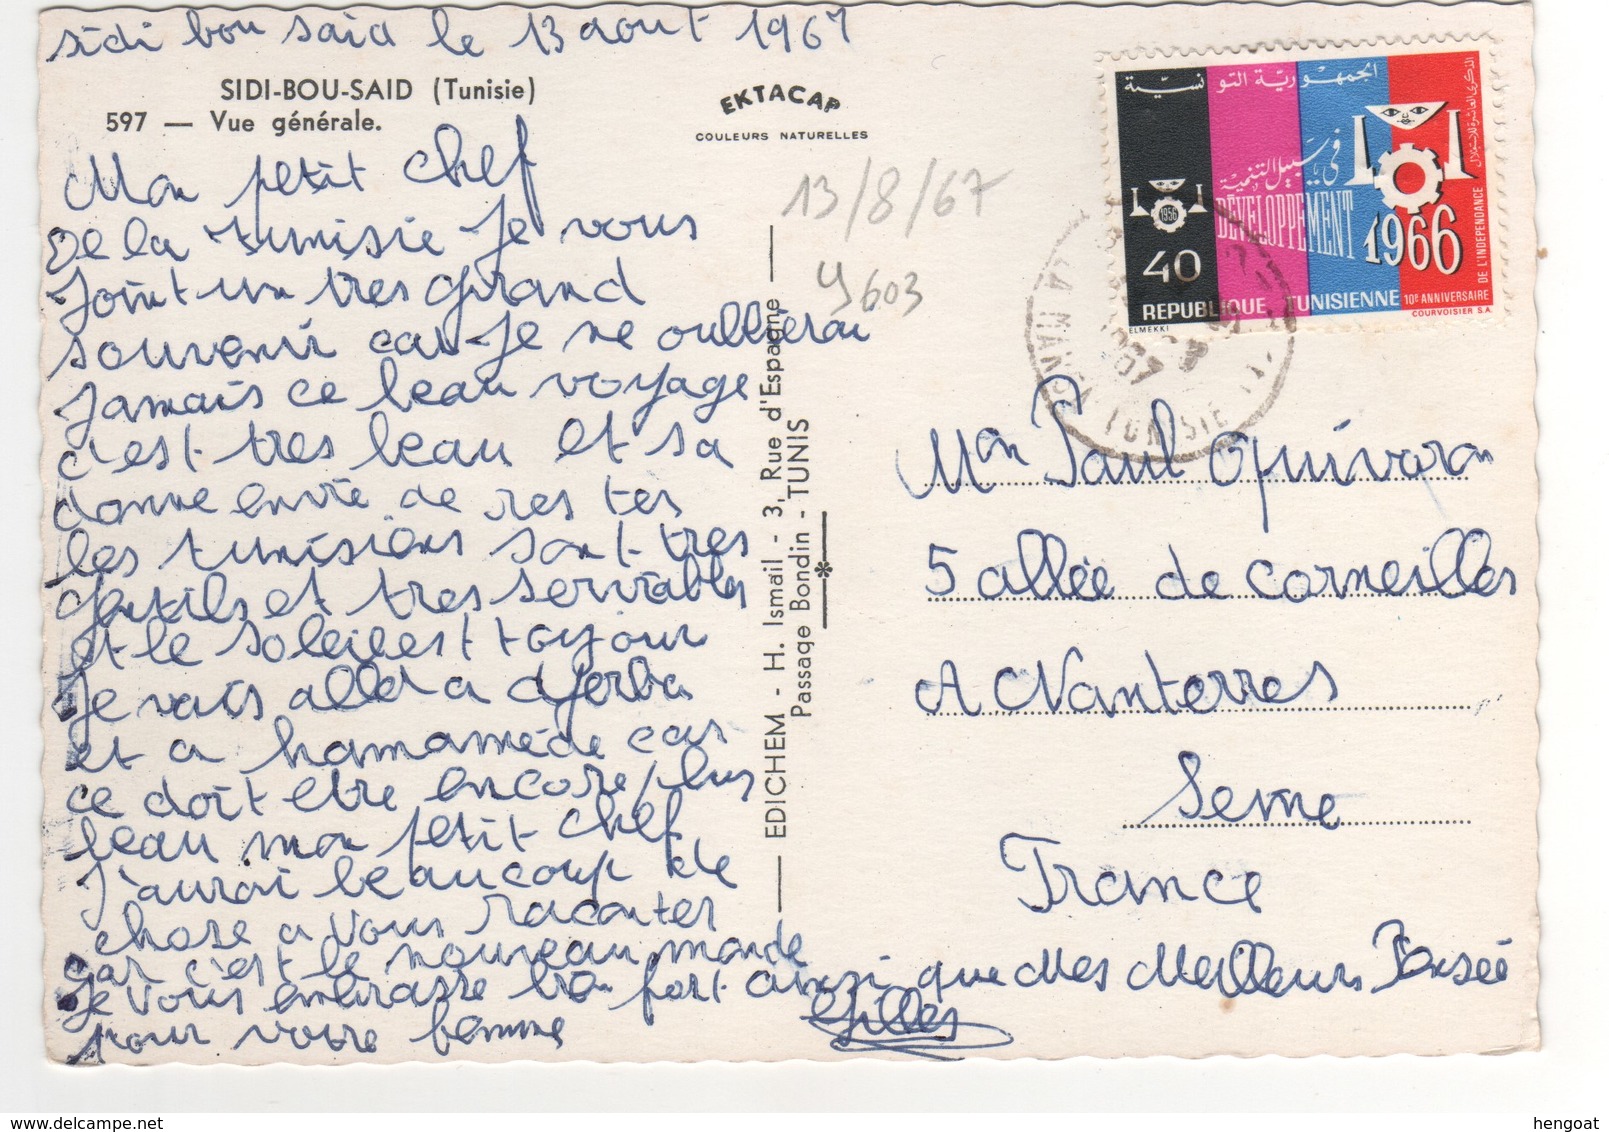 sidi bou said le 13 aout 1967
SIDI-BOU-SAID (Tunisie)
597 — Vue générale.
EKTACAP
COULEURS NATURELLES
Mon petit chef
De la tunisie je vous
joint un tres grand
souvenir car je ne oublierai
jamais ce beau voyage
c'est tres beau et sa
donne envie de res ter
les tunisiens sont tres
gentils et tres serviables
et le soleil est toujour
je vais aller a djerba
et a hamamède car
ce doit etre encore plus
beau mon petit chef
j'aurai beaucoup de
chose a vous raconter
car c'est le nouveau monde
je vous embrasse bien fort ainsi que Mes Meilleurs Pensée
pour votre femme
Gilles
EDICHEM - H. Ismail - 3, Rue d'Espagne
Passage Bondin - TUNIS
13/8/67
y 603
الجمهورية التونسية
في سبيل التنمية
الذكرى العاشرة للاستقلال
1956
DÉVELOPPEMENT
1966
40
REPUBLIQUE TUNISIENNE
10E ANNIVERSAIRE
DE L'INDEPENDANCE
ELMEKKI
COURVOISIER S.A.
LA MANOUBA TUNISIE
Mon Paul Quivoron
5 allée de corneilles
A Nanterres
Seine
France
hengoat